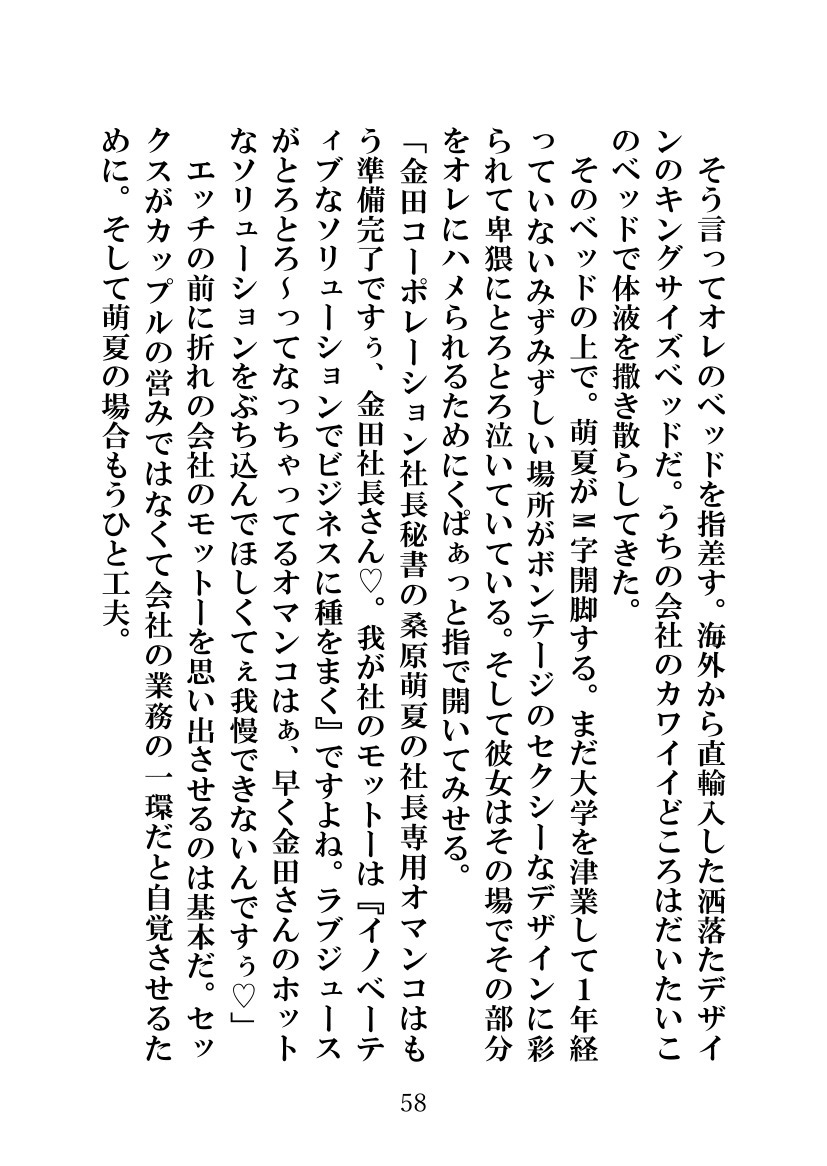 そう言ってオレのベッドを指差す。海外から直輸入した洒落たデザイ
ンのキングサイズベッドだ。うちの会社のカワイイどころはだいたいこ
のベッドで体液を撒き散らしてきた。
　そのベッドの上で。萌夏がM字開脚する。まだ大学を津業して１年経
っていないみずみずしい場所がボンテージのセクシーなデザインに彩
られて卑猥にとろとろ泣いていている。そして彼女はその場でその部分
をオレにハメられるためにくぱぁっと指で開いてみせる。
「金田コーポレーション社長秘書の桑原萌夏の社長専用オマンコはも
う準備完了ですぅ、金田社長さん♡。我が社のモットーは『イノベーテ
ィブなソリューションでビジネスに種をまく』ですよね。ラブジュース
がとろとろ～ってなっちゃってるオマンコはぁ、早く金田さんのホット
なソリューションをぶち込んでほしくてぇ我慢できないんですぅ♡」
　エッチの前に折れの会社のモットーを思い出させるのは基本だ。セッ
クスがカップルの営みではなくて会社の業務の一環だと自覚させるた
めに。そして萌夏の場合もうひと工夫。
58